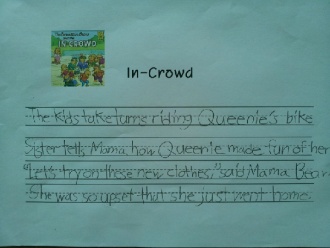 In-Crowd
In-Crowd
The kids take turns riding Queenie's bike
Sister tells Mama how Queenie made fun of her
"Let's try on these new clothes," said Mama Bear
She was so upset that she just went home.